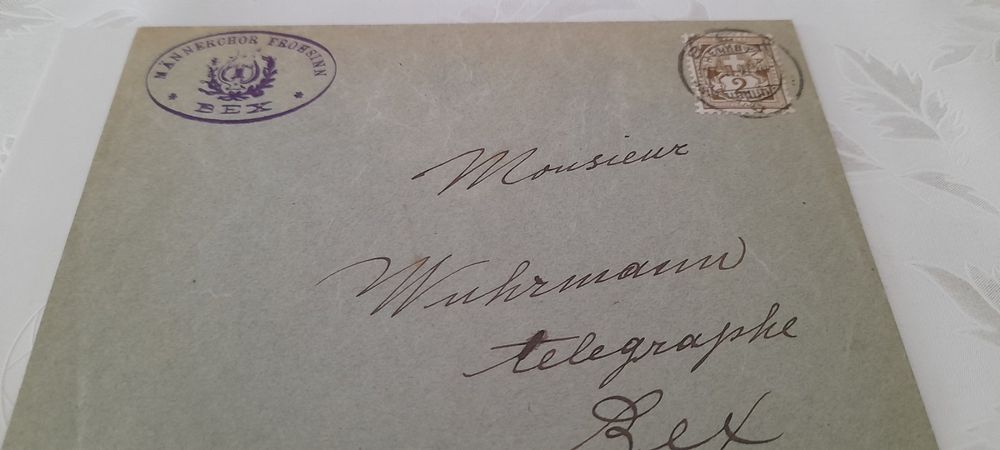 MÄNNERCHOR FROHSINN
* BEX *
2
Monsieur
Wuhrmann
telegraphe
Bex